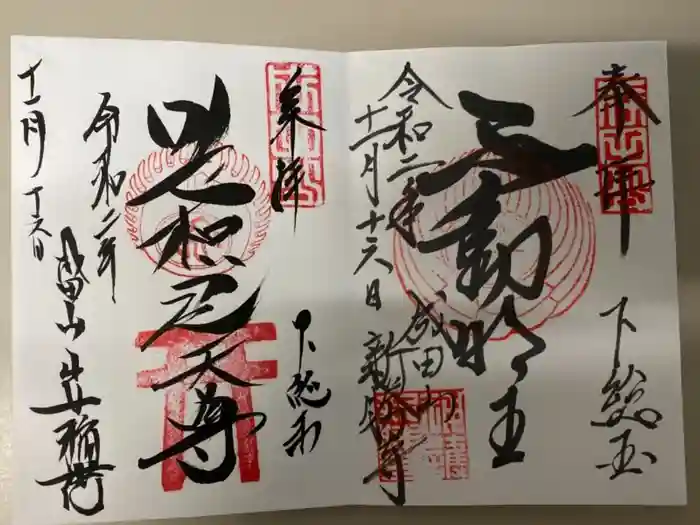 奉拝
下総国
不動明王
令和二年
十二月十六日
成田山
新勝寺
奉拝
下総国
荼枳尼天尊
令和二年
十二月十六日
成田山出世稲荷